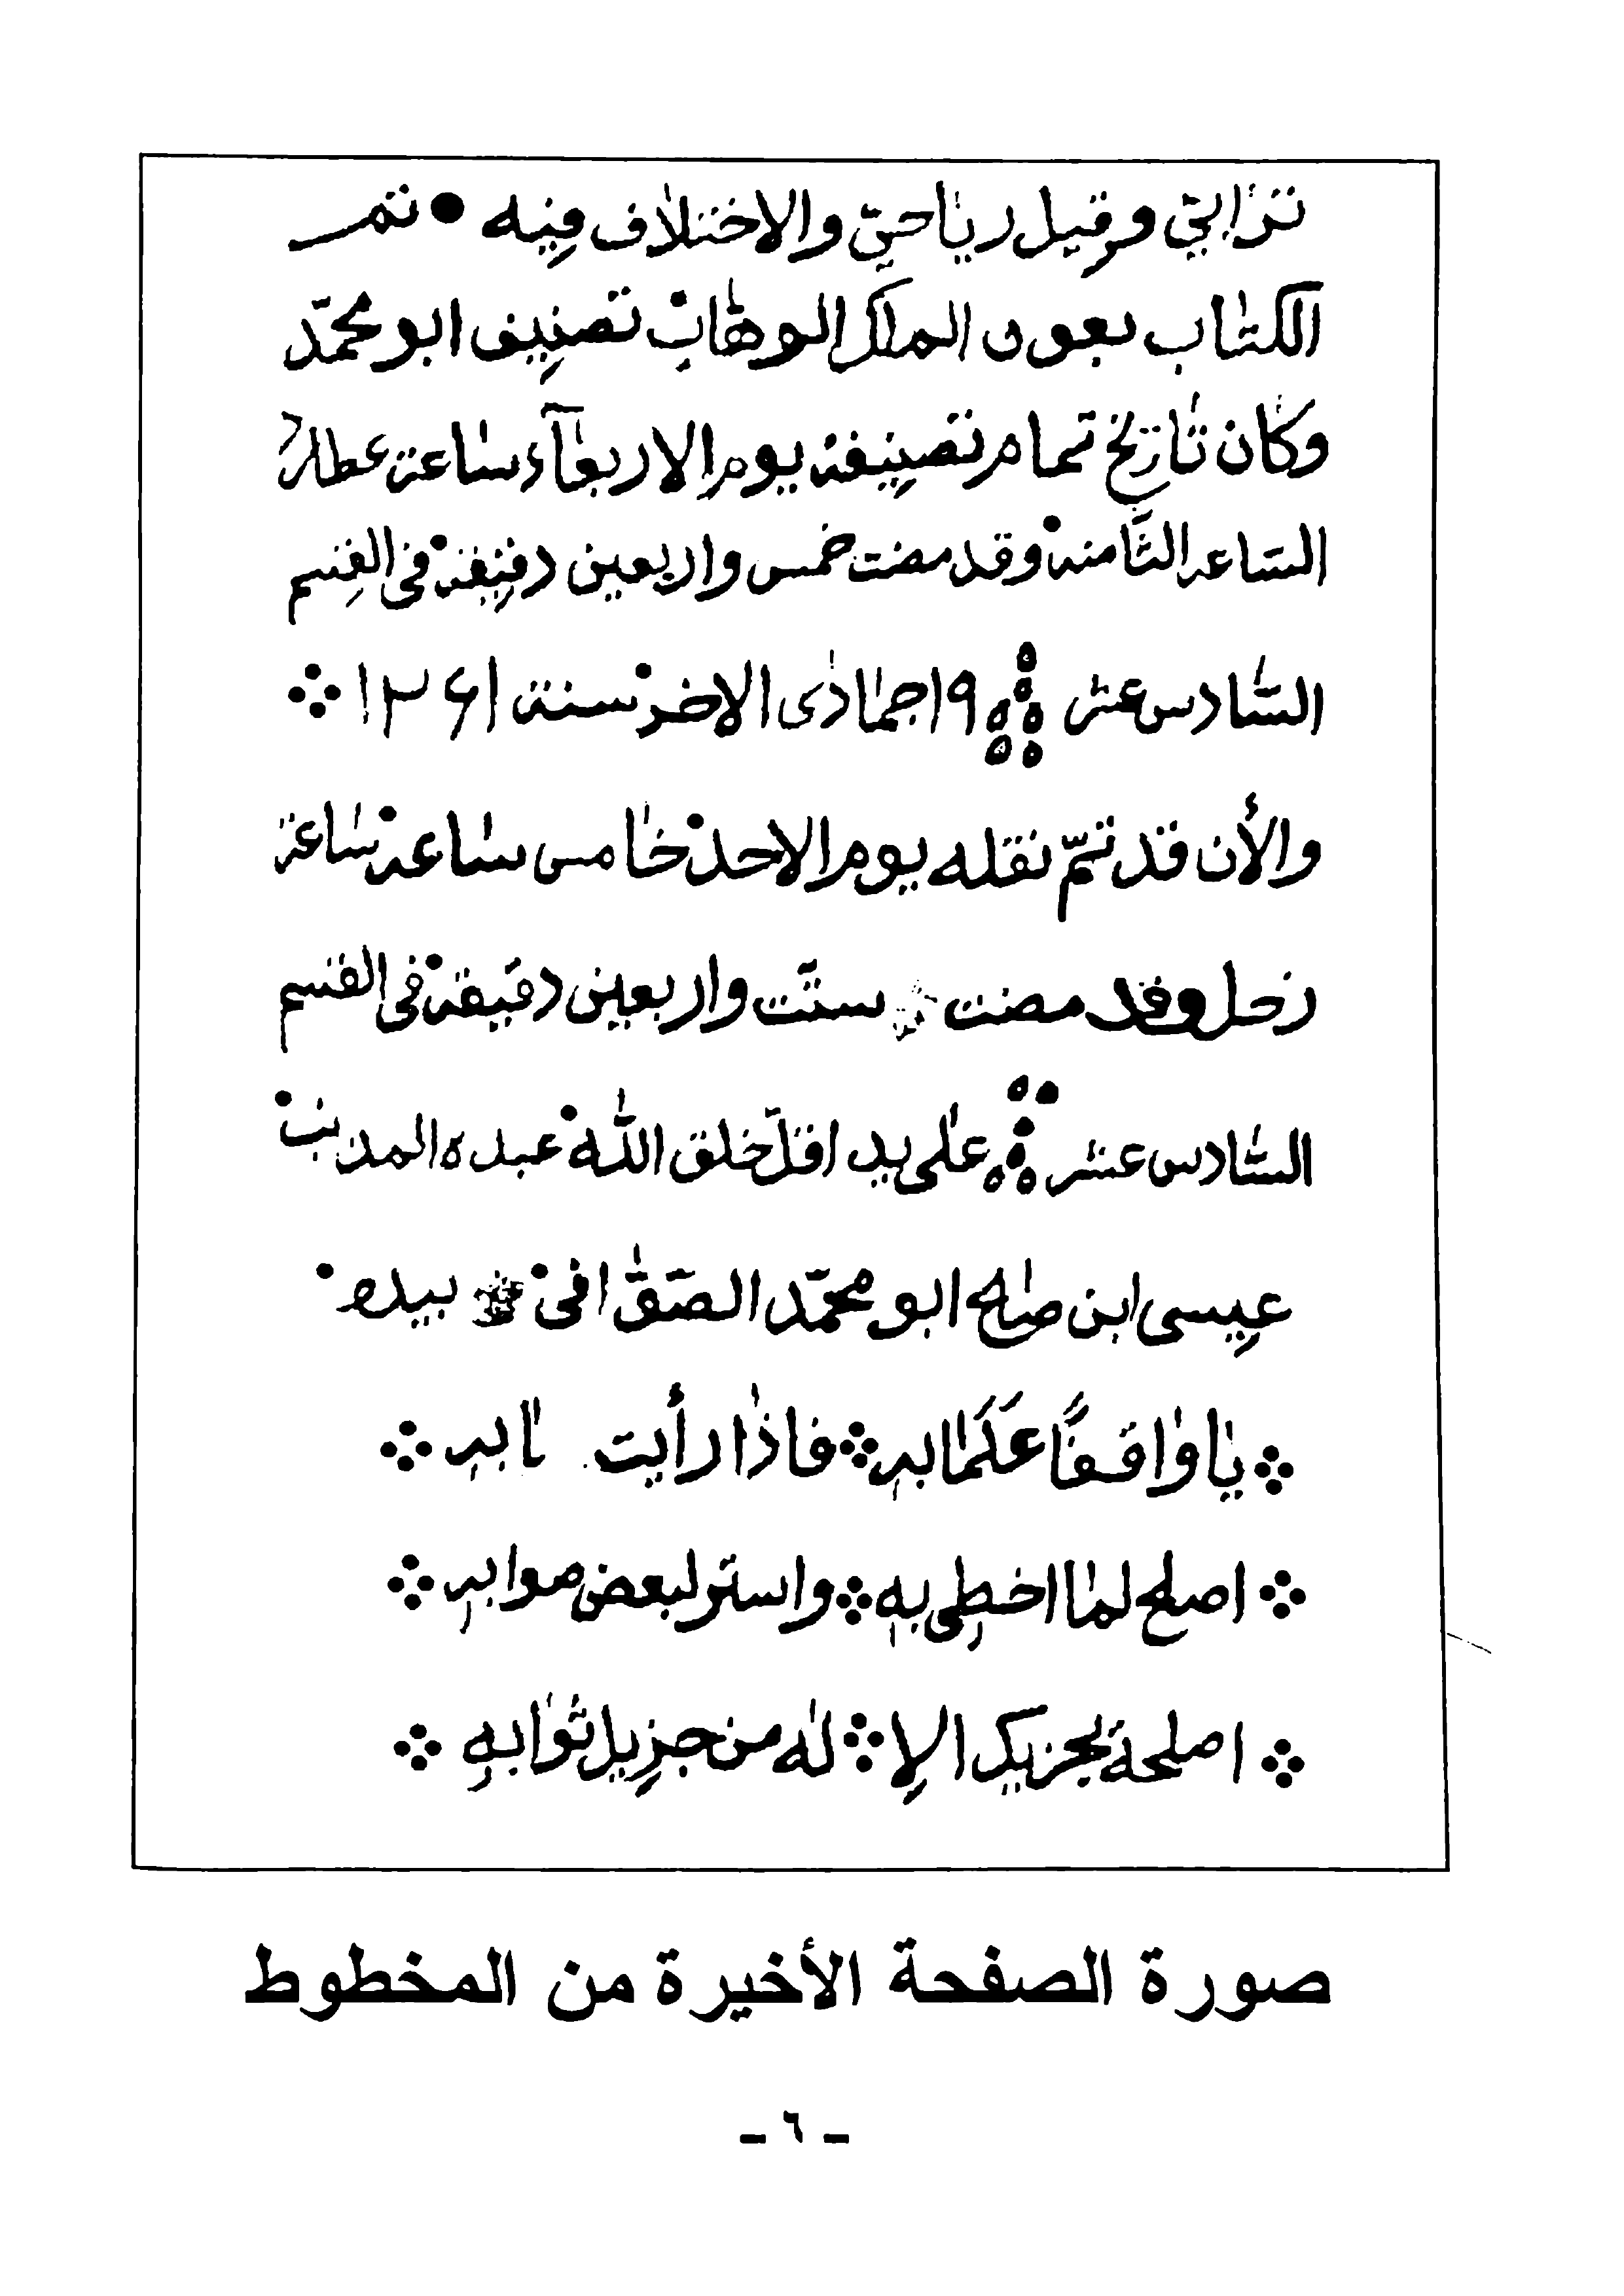 ترابيّ وقيل رياحيّ والاختلاف فيه • تمـ
الكتاب بعون الملك الوهاب تصنيف ابو محمّد
وكان تاريخ تمام تصنيفة يوم الاربعآء ساعة عطارد
الساعة الثامنة وقد مضت خمس واربعين دقيقة في القسم
السّادس عشر ١٩ جمادى الاخر سنة ١٣٤١
والأن قد تمّ نقله يوم الاحد خامس ساعة ساعة
زحل وقد مضت ستّت واربعين دقيقة في القسم
السّادس عشر على يد اقلّ خلق اللّه عبده المذنب
عيسى ابن صالح ابو محمّد الصّقّافى بيده
يا واقفًا عَكَمابه فاذا رأيت نابه
اصلح لما اخطى به واستر لبعض صوابه
اصلحة يجزيك الإ له من جزيل ثوابه
صورة الصفحة الأخيرة من المخطوط
- ٦ -